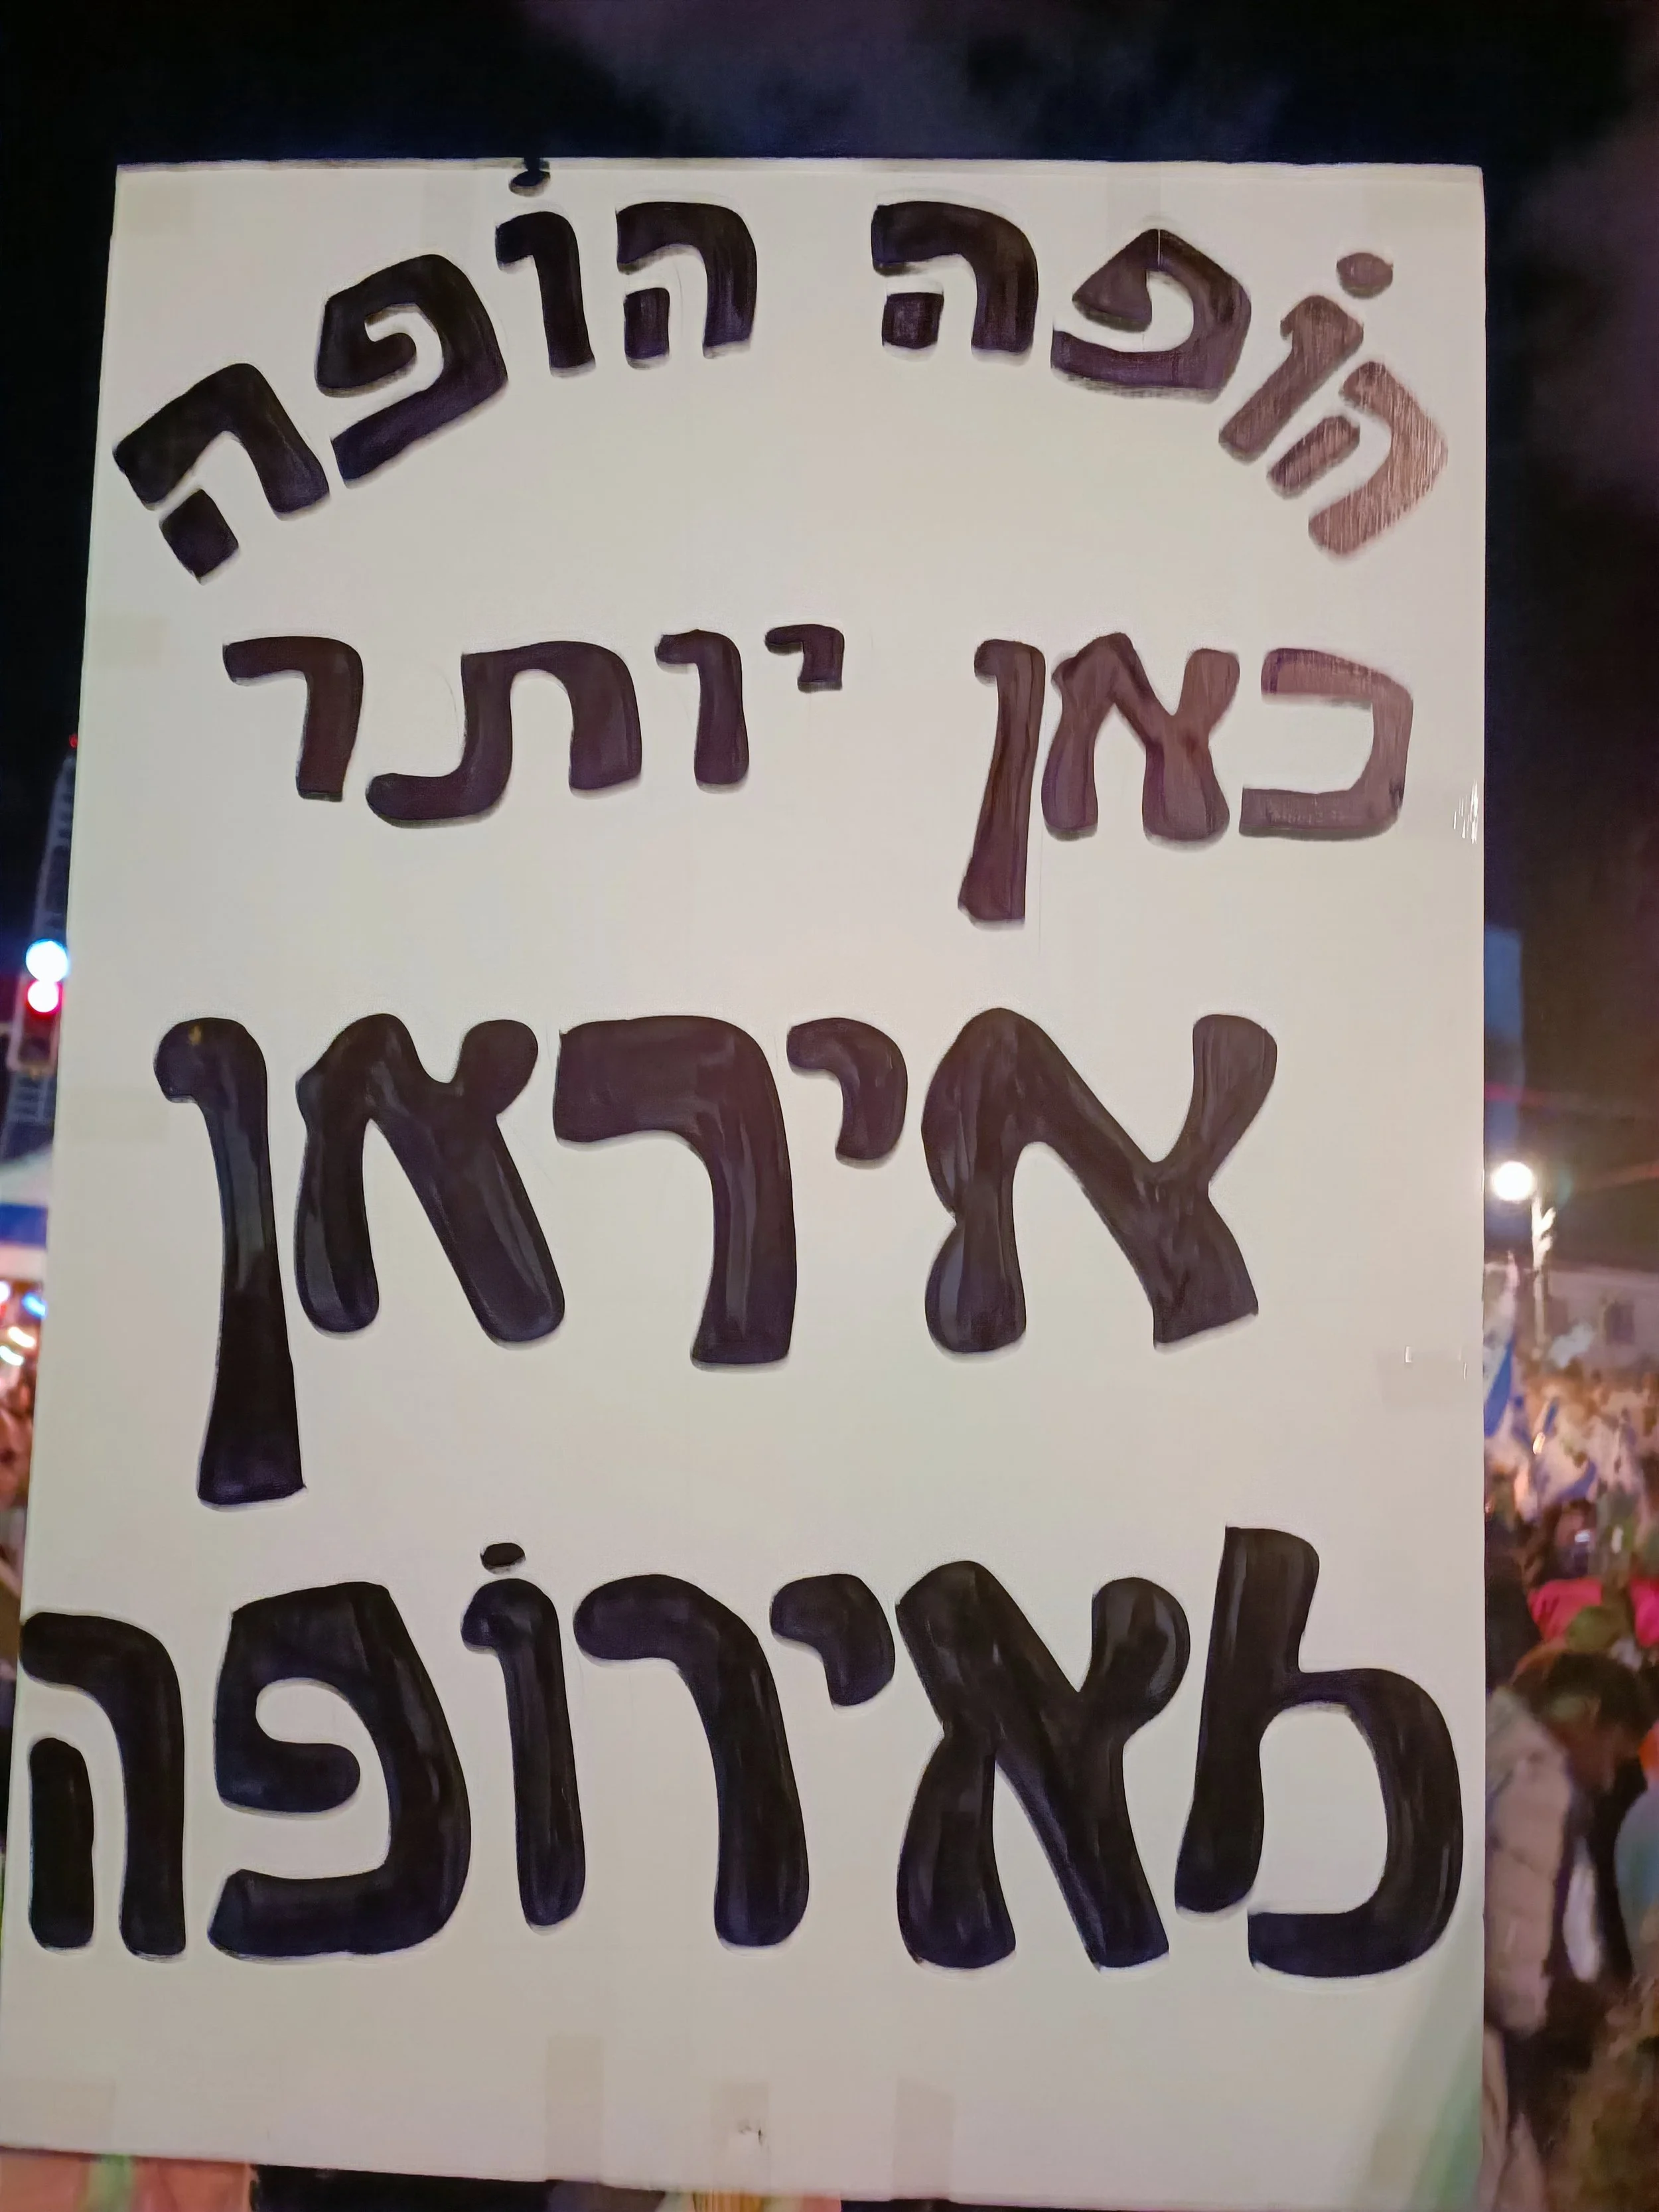 הוֹפה הוֹפה
כאן יותר
איראן
מאירוֹפה